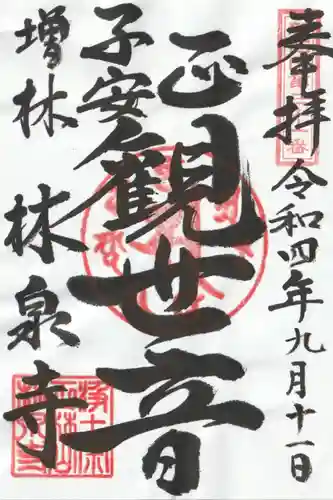 奉拝
令和四年九月十一日
正観世音
子安観
増林
林泉寺